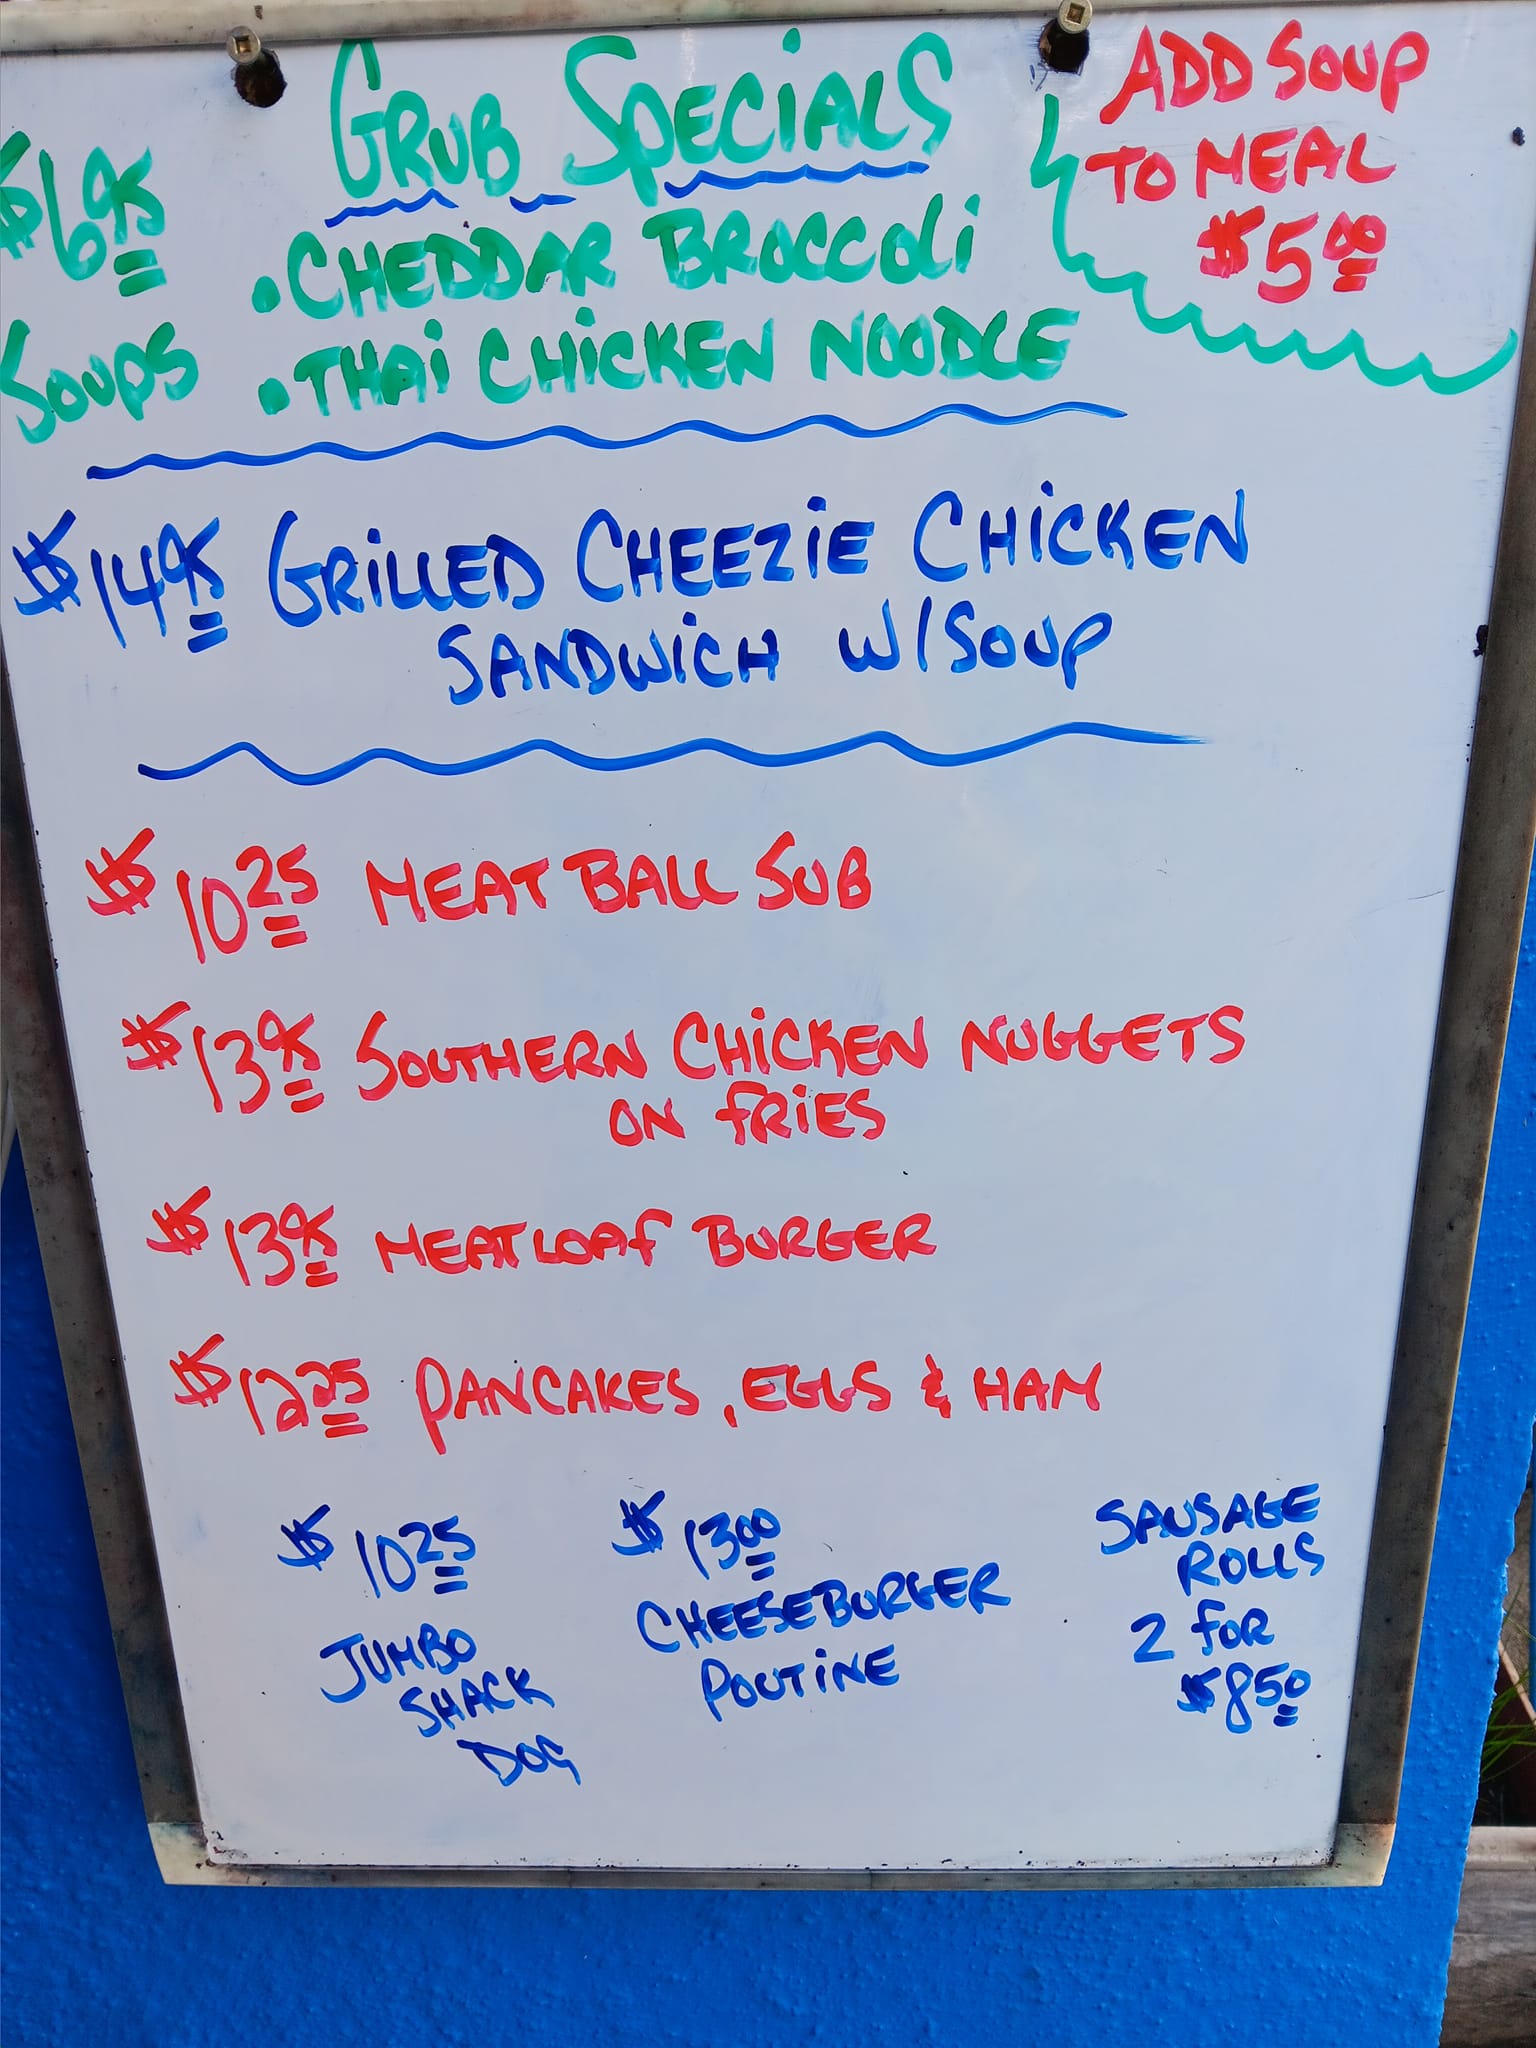 GRUB SPECIALS
ADD SOUP
TO MEAL
$5.00
$6.95
SOUPS
• CHEDDAR BROCCOLI
• THAI CHICKEN NOODLE
$14.95 GRILLED CHEEZIE CHICKEN
SANDWICH W/SOUP
$10.25 MEAT BALL SUB
$13.95 SOUTHERN CHICKEN NUGGETS
ON FRIES
$13.95 MEATLOAF BURGER
$12.25 PANCAKES, EGGS & HAM
$10.25
JUMBO
SHACK
DOG
$13.00
CHEESEBURGER
POUTINE
SAUSAGE
ROLLS
2 FOR
$8.50